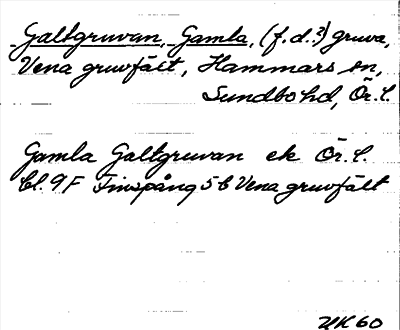 Galtgruvan, Gamla, (f.d.?) gruva,
Vena gruvfält, Hammars sn,
Sundbo hd, Ör. l.
Gamla Galtgruvan ek Ör. l.
bl. 9F Finspång 5b Vena gruvfält
UK 60